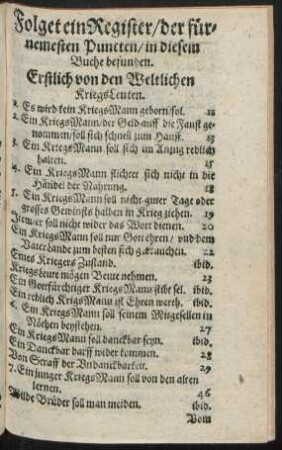 Folget ein Register / der für-
nemesten Puncten / in diesem
Buche befunden.
Erstlich von den Weltlichen
KriegsLeuten.
Es wird kein KriegsMann geborn / fol.
2. Ein KriegsMann / der Geld auff die Faust ge-
nommen / soll sich schnell zum Hauff. 13
3. Ein KriegsMann soll sich im Anzug redlich
halten. 15
4. Ein KriegsMann flichtet sich nicht in die
Händel der Nahrung. 18
5. Ein KriegsMann soll nicht guter Tage oder
grosses Gewinsts halben in Krieg ziehen. 19
Niemt soll nicht wider das Wort dienen. 20
Ein KriegsMann soll nur Gott ehren / vnd dem
Vaterlande zum besten sich gebrauchen. 22
Eines Kriegers Zustand. ibid.
Kriegsleute mögen Beute nehmen. 23
Ein Gottfürchtiger KriegsMann stibt sel. ibid.
Ein redlich KrigsMann ist Ehren werth. ibid.
6. Ein KriegsMann soll seinem Mitgesellen in
Nöthen beystehen. 27
Ein KriegsMann soll danckbar seyn. ibid.
Ein Danckbar darff wider kommen. 28
Von Straff der Vndanckbarkeit. 29
7. Ein junger KriegsMann soll von den alten
lernen. 46
Wilde Brüder soll man meiden. ibid.
Vom